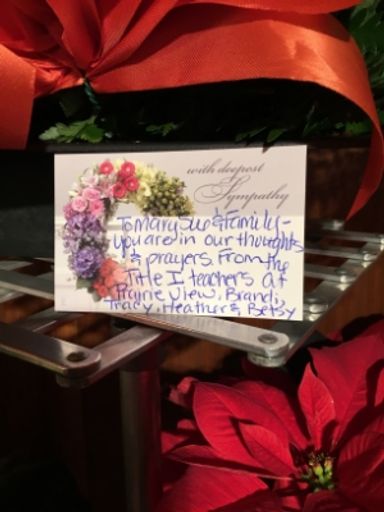 with deepest
Sympathy
To Mary Sue & Family -
you are in our thoughts
& prayers. From the
Title I teachers at
Prairie View, Brandi,
Tracy, Heather & Betsy